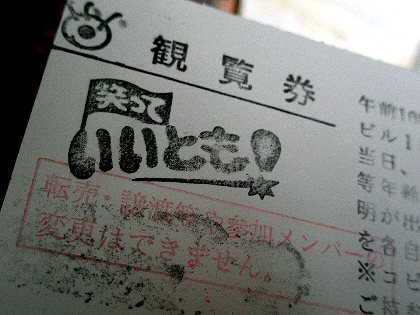 観覧券
笑って
いいとも!
転売・譲渡等や参加メンバーの
変更はできません。
午前10
ビル1
当日、
等年
明が出
を各自
※コピ
ご持